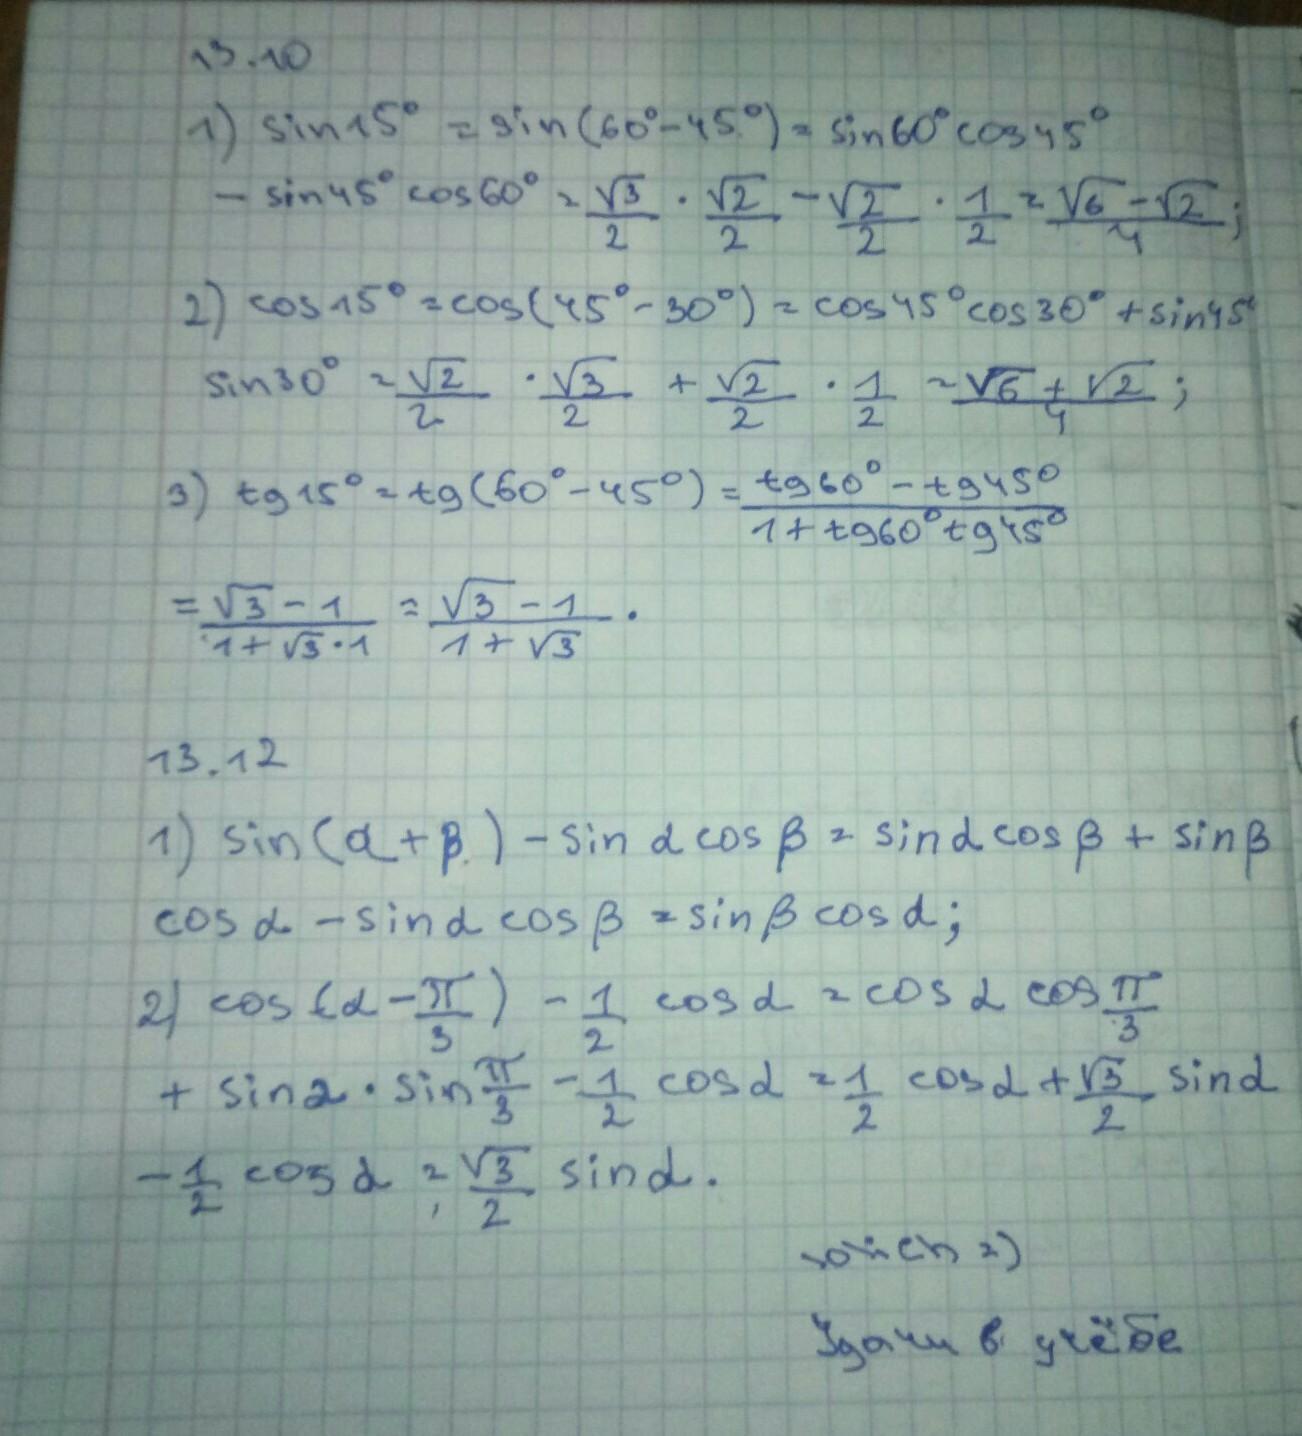 13.10
1) sin15° = sin(60° - 45°) = sin60° cos45°
- sin45° cos60° = √3/2 · √2/2 - √2/2 · 1/2 = (√6 - √2)/4;
2) cos15° = cos(45° - 30°) = cos45° cos30° + sin45°
sin30° = √2/2 · √3/2 + √2/2 · 1/2 = (√6 + √2)/4;
3) tg15° = tg(60° - 45°) = (tg60° - tg45°)/(1 + tg60° tg45°)
= (√3 - 1)/(1 + √3 · 1) = (√3 - 1)/(1 + √3).
13.12
1) sin(α + β) - sin α cos β = sin α cos β + sin β
cos α - sin α cos β = sin β cos α;
2) cos(α - π/3) - 1/2 cos α = cos α cos π/3
+ sin α · sin π/3 - 1/2 cos α = 1/2 cos α + √3/2 sin α
- 1/2 cos α = √3/2 sin α.
Удачи в учёбе